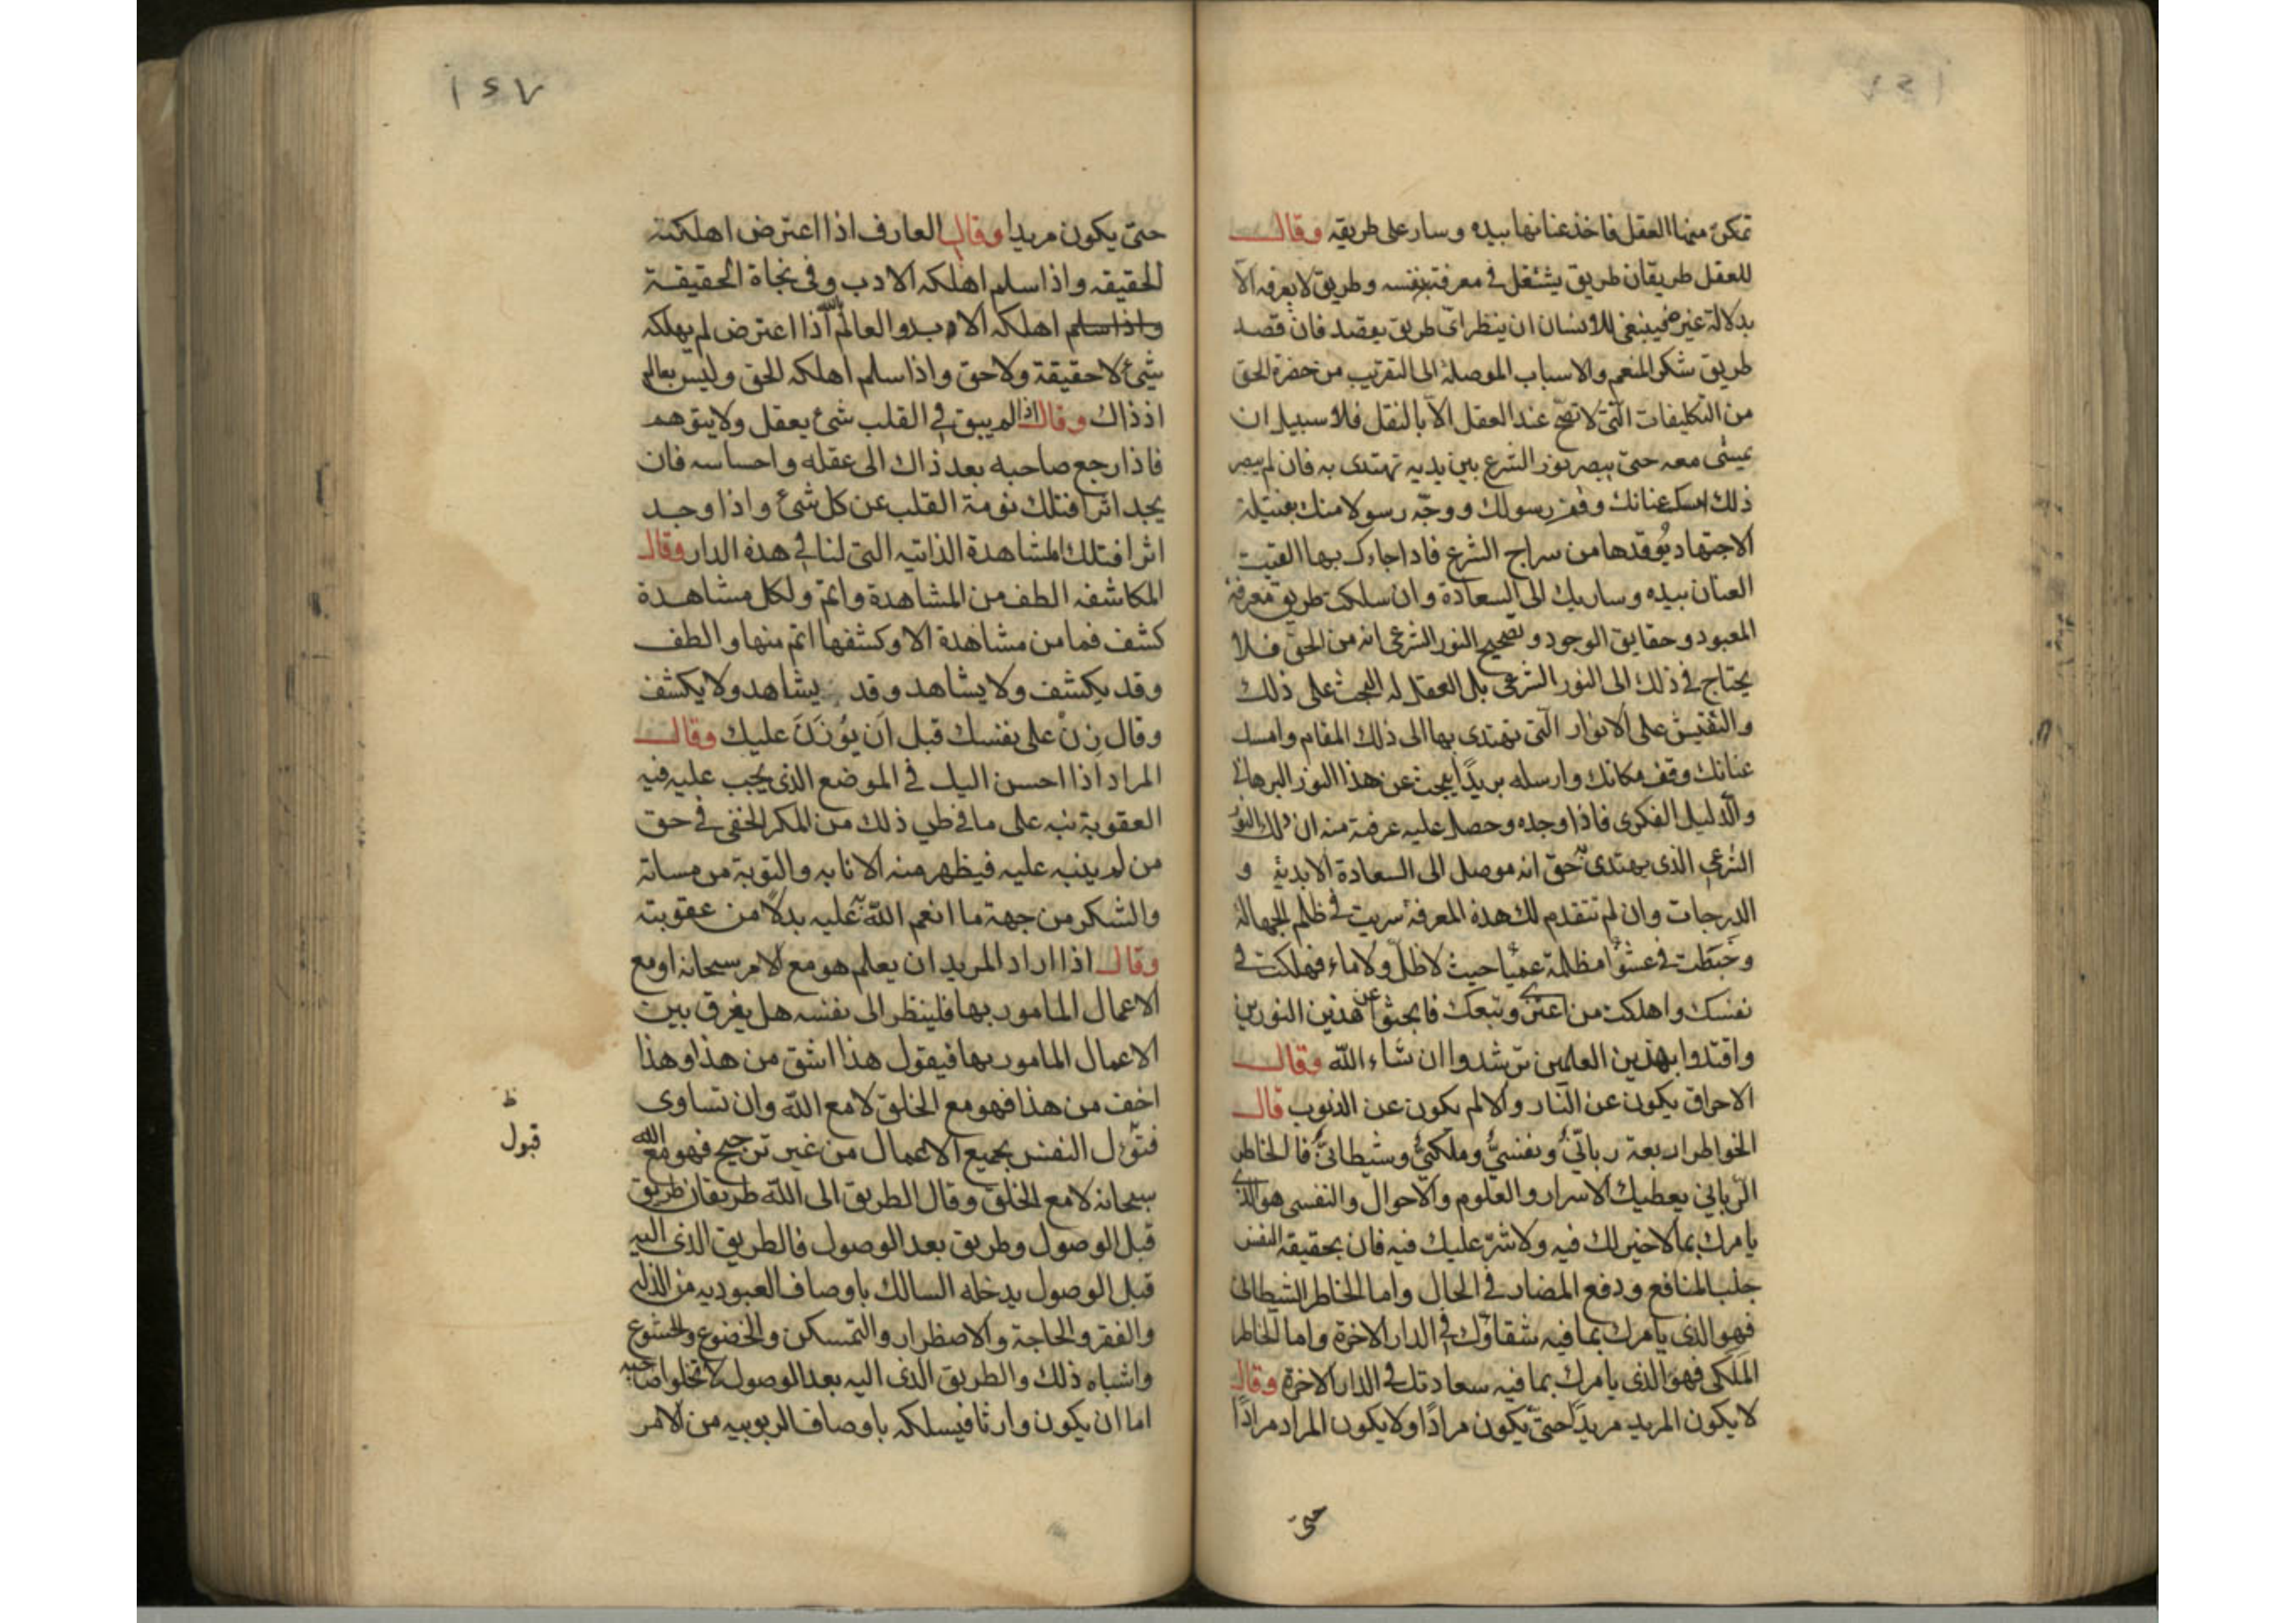 تمكن منها العقل فاخذ عنانها بيده وسار على طريقه وقال
للعقل طريقان طريق يشتغل في معرفته بنفسه وطريق لا يعرفه الّا
بدلالة غيره فينبغي للانسان ان ينظر اي طريق يقصد فان قصد
طريق شكر المنعم والاسباب الموصلة الى التقريب من حضرة الحق
من التكليفات الّتي لا تصحّ عند العقل الّا بالنقل فلا سبيل ان
يمشي معه حتى يبصر نور الشرع بين يديه تهتدى به فان لم يبصر
ذلك امسك عنانك وقف رسولك ووجّه رسولا منك بفتيلة
الاجتهاد يُوقدها من سراج الشرع فاذا جاءك بها القيت
العنان بيده وسار بك الى السعادة وان سلكت طريق معرفة
المعبود وحقايق الوجود وتصحيح النور الشرعى انه من الحق فلا
يحتاج في ذلك الى النور الشرعى بل العقل له البحث على ذلك
والتفتيش على الانوار الّتي تهتدى بها الى ذلك المقام وامسك
عنانك وقف مكانك وارسله بريدًا يبحث عن هذا النور البرهاني
والدليل الفكرى فاذا وجده وحصل عليه عرفت منه ان ذلك النور
الشرعى الذى يهتدى به حق انه موصل الى السعادة الابدية و
الدرجات وان لم تتقدم لك هذه المعرفة سريت في ظلم الجهالة
وخبَطَت في عشوا مظلمة عميا حيث لا ظلّ ولا ماء فهلكت في
نفسك واهلكت من اعتزى وتبعك فابحثوا عن هذين النورين
واقتدوا بهذين العلمين ترشدوا ان شاء الله وقال
الاحراق يكون عن النار والالم يكون عن الذنوب قال
الخواطر اربعة ربانّي ونفسيّ وملكيّ وشيطانيّ فالخاطر
الرباني يعطيك الاسرار والعلوم والاحوال والنفسى هو الذى
يامرك بما لا خير لك فيه ولا شرّ عليك فيه فان بحقيقة النفس
جلب المنافع ودفع المضار في الحال واما الخاطر الشيطاني
فهو الذى يامرك بما فيه شقاؤك في الدار الاخرة واما الخاطر
المَلَكى فهو الذى يامرك بما فيه سعادتك في الدار الاخرة وقال
لا يكون المريد مريدًا حتى يكون مرادًا ولا يكون المراد مرادًا
حتى
١٤٧
حتى يكون مريدا وقال العارف اذا اعترض اهلكته
الحقيقه واذا سلم اهلكه الادب وفي نجاة الحقيقة
واذا سلم اهلكه الادب والعالم بالله اذا اعترض لم يهلكه
شيء لا حقيقة ولا حق واذا سلم اهلكه الحق وليس بعالم
اذ ذاك وقال اذا لم يبق في القلب شيء يعقل ولا يتوهم
فاذا رجع صاحبه بعد ذاك الى عقله واحساسه فان
يجد اثرا فتلك نومة القلب عن كل شيء واذا وجد
اثرا فتلك المشاهدة الذاتيه التى لنا في هذه الدار وقال
المكاشفه الطف من المشاهدة واتم ولكل مشاهدة
كشف فما من مشاهدة الا وكشفها اتم منها والطف
وقد يكشف ولا يشاهد وقد يشاهد ولا يكشف
وقال زِنْ على نفسك قبل اَن يُوزَنَ عليك وقال
المراد اذا احسن اليك في الموضع الذى يجب عليه فيه
العقوبة نبه على ما في طي ذلك من المكر الخفى في حق
من لم ينبه عليه فيظهر منه الانابه والتوبة من مساته
والشكر من جهة ما انعم اللّه به عليه بدلاً من عقوبته
وقال اذا اراد المريد ان يعلم هو مع الامر سبحانه او مع
الاعمال المامور بها فلينظر الى نفسه هل يفرق بين
الاعمال المامور بها فيقول هذا اشق من هذا وهذا
اخف من هذا فهو مع الخلق لا مع اللّه وان تساوى
قبول النفس بجميع الاعمال من غير ترجيح فهو مع الله
سبحانه لا مع الخلق وقال الطريق الى اللّه طريقان طريق
قبل الوصول وطريق بعد الوصول فالطريق الذى اليه
قبل الوصول يدخله السالك باوصاف العبوديه من الذله
والفقر والحاجة والاضطرار والتمسكن والخضوع والخشوع
واشباه ذلك والطريق الذى اليه بعد الوصول لا تخلوا صاحبه
اما ان يكون وارثا فيسلكه باوصاف الربوبيه من الامر
ظ
قبول